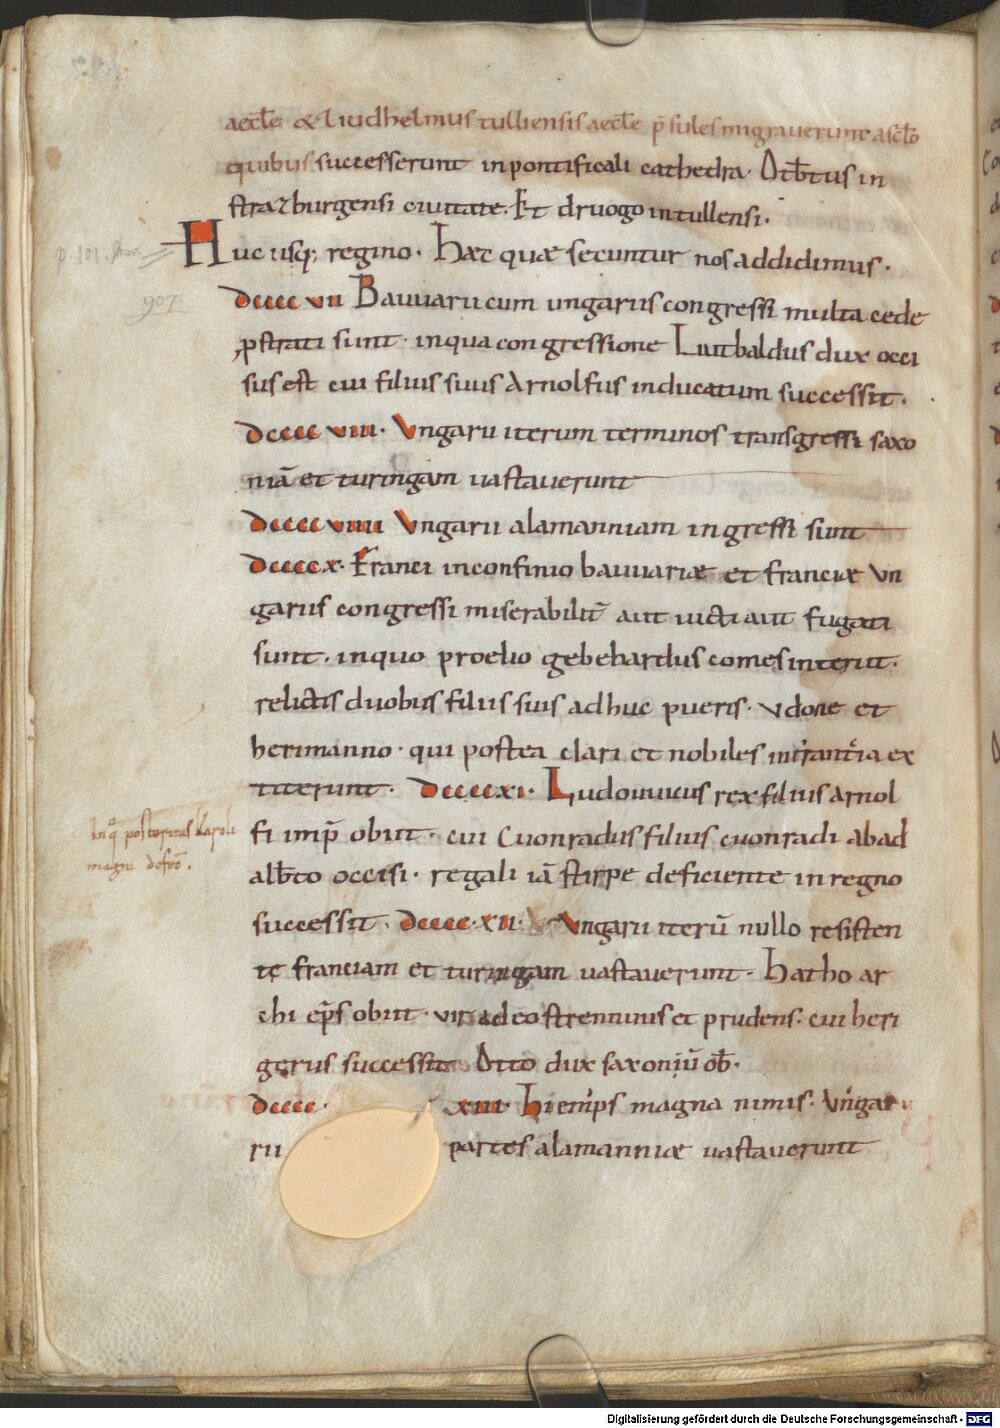 aeccl̄e & Liudhelmus tulliensis aeccl̄e p̄sules migraverunt a sc̄lo
quibus successerunt in pontificali cathedra. Otb̄tus in
strazburgensi civitate. Et druogo in tullensi.
Huc usq; regino. Haec quae secuntur nos addidimus.
907.
dcccc vii Bauuarii cum ungariis congressi multa cede
ꝓstrati sunt. in qua congressione Liutbaldus dux occi
sus est cui filius suus Arnolfus in ducatum successit.
dcccc viii. Ungarii iterum terminos transgressi saxo
niā et turingam vastaverunt
dcccc viiii Ungarii alamanniam ingressi sunt
dcccc x. Franci in confinio bauuariae et franciae Un
gariis congressi miserabilit̄ aut victi aut fugati
sunt. in quo proelio gebehardus comes interiit.
relictis duobus filiis suis adhuc pueris. Udone et
herimanno. qui postea clari et nobiles in frantia ex
titerunt. dcccc xi. Ludouuicus rex filius arnol
fi imp̄ obiit. cui Cuonradus filius cuonradi ab ad
alb̄to occisi. regali iā stirpe deficiente in regno
hiq᷒ posteritas Karoli
magni defec̄.
successit. dcccc.xii. Ungarii iterū nullo resisten
te franciam et turingam vastaverunt. Hatho ar
chi ep̄s obiit. vir adeo strenuus et prudens. cui heri
gerus successit Otto dux saxoniū ob̄.
dcccc. xiii. Hiemp̄s magna nimis. Ungar
rii partes alamanniae vastaverunt
Digitalisierung gefördert durch die Deutsche Forschungsgemeinschaft - DFG